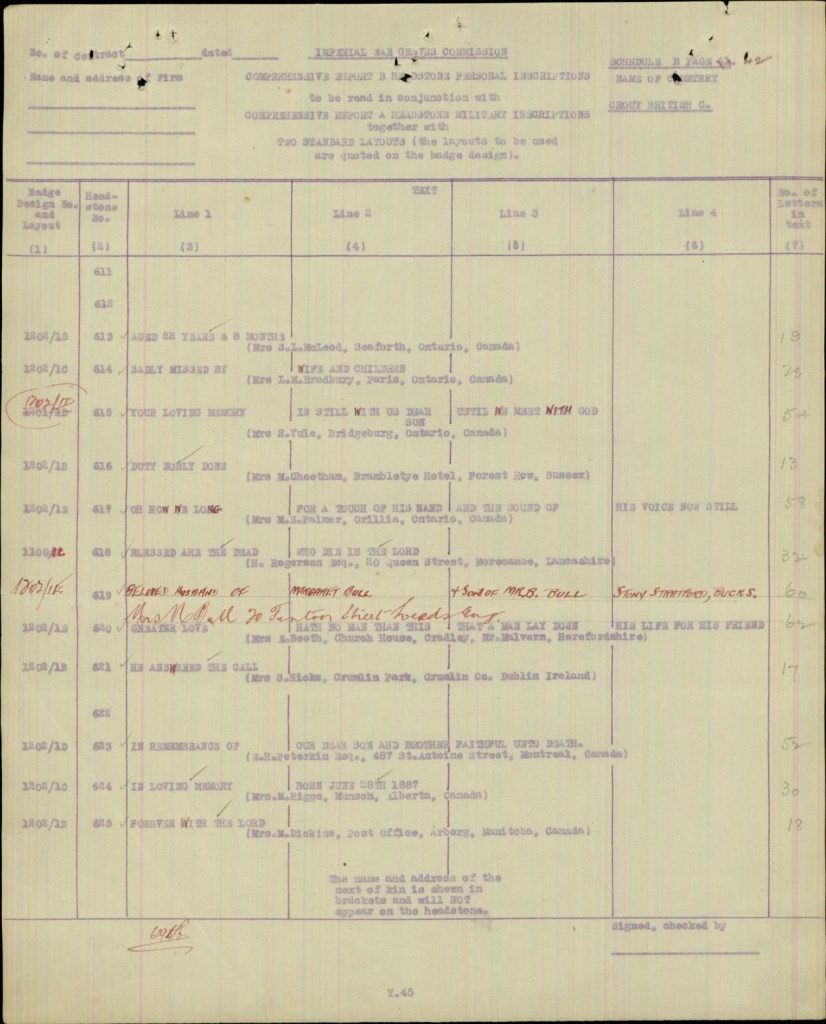 No. of contract dated
IMPERIAL WAR GRAVES COMMISSION
SCHEDULE B PAGE 42
Name and address of Firm
COMPREHENSIVE REPORT B HEADSTONE PERSONAL INSCRIPTIONS
NAME OF CEMETERY
to be read in conjunction with
COMPREHENSIVE REPORT A HEADSTONE MILITARY INSCRIPTIONS
CROUY BRITISH C.
together with
TWO STANDARD LAYOUTS (the layouts to be used
are quoted on the badge design).
Badge Design No. and Layout (1)
Head-stone No. (2)
TEXT
Line 1 (3)
Line 2 (4)
Line 3 (5)
Line 4 (6)
No. of Letters in text (7)
611
612
1202/1B 613 AGED 22 YEARS & 8 MONTHS 19
(Mrs S.L.McLeod, Seaforth, Ontario, Canada)
1202/1C 614 SADLY MISSED BY WIFE AND CHILDREN 25
(Mrs L.M.Bradbury, Paris, Ontario, Canada)
1202/1D
615 YOUR LOVING MEMORY IS STILL WITH US DEAR SON UNTIL WE MEET WITH GOD 54
(Mrs H.Yule, Bridgeburg, Ontario, Canada)
1202/1B 616 DUTY NOBLY DONE 13
(Mrs M.Cheetham, Brambletye Hotel, Forest Row, Sussex)
1202/1E 617 OH HOW WE LONG FOR A TOUCH OF HIS HAND AND THE SOUND OF HIS VOICE NOW STILL 58
(Mrs M.E.Palmer, Orillia, Ontario, Canada)
1100/ 618 BLESSED ARE THE DEAD WHO DIE IN THE LORD 32
(H. Rogerson Esq., 20 Queen Street, Morecambe, Lancashire)
1202/1E 619 BELOVED HUSBAND OF MARGARET BULL & SON OF MR.B. BULL STONY STRATFORD, BUCKS. 60
Mrs M Bull 20 Street Leeds Eng.
1202/1E 620 GREATER LOVE HATH NO MAN THAN THIS THAT A MAN LAY DOWN HIS LIFE FOR HIS FRIEND 62
(Mrs A.Booth, Church House, Cradley, Nr.Malvern, Herefordshire)
1202/1B 621 HE ANSWERED THE CALL 17
(Mrs S.Hicks, Crumlin Park, Crumlin Co. Dublin Ireland)
622
1202/1D 623 IN REMEMBRANCE OF OUR DEAR SON AND BROTHER FAITHFUL UNTO DEATH. 52
(E.H.Peterkin Esq., 487 St.Antoine Street, Montreal, Canada)
1202/1C 624 IN LOVING MEMORY BORN JUNE 28TH 1887 30
(Mrs.M.Higgs, Munson, Alberta, Canada)
1202/1B 625 FOREVER WITH THE LORD 18
(Mrs.M.Dickins, Post Office, Arborg, Manitoba, Canada)
The name and address of the
next of kin is shown in
brackets and will NOT
appear on the headstone.
Signed, checked by
Y.45